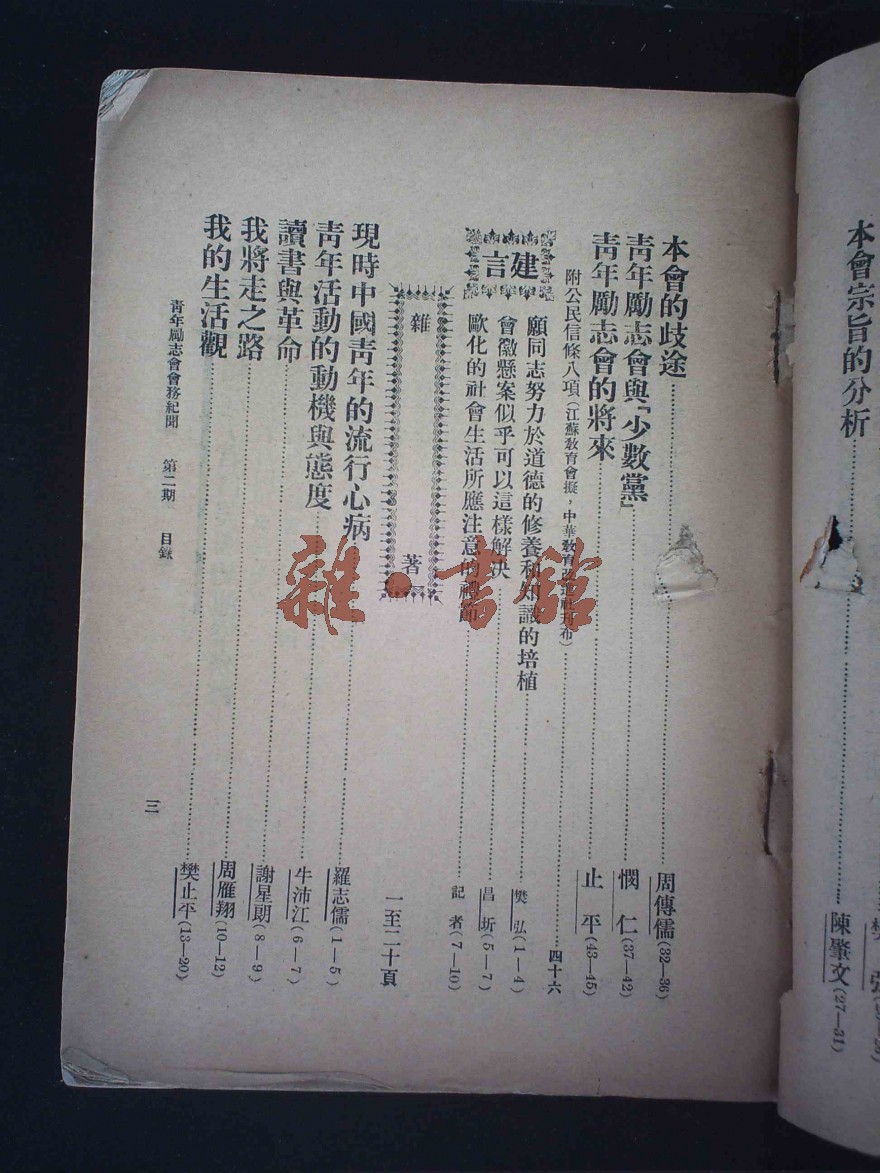 本會宗旨的分析……陳肇文(27—31)
本會的歧途……周傳儒(32—36)
靑年勵志會與「少數黨」……憫仁(37—42)
靑年勵志會的將來……止平(43—45)
附公民信條八項(江蘇敎育會擬,中華敎育改進社刊布)……四十六
建言
願同志努力於道德的修養和知識的培植……樊弘(1—4)
會徽懸案似乎可以這樣解决……昌圻(5—7)
歐化的社會生活所應注意的禮節……記者(7—10)
雜著 一至二十頁
現時中國靑年的流行心病……羅志儒(1—5)
靑年活動的動機與態度……牛沛江(6—7)
讀書與革命……謝星朗(8—9)
我將走之路……周雁翔(10—12)
我的生活觀……樊止平(13—20)
靑年勵志會會務紀聞 第二期 目錄
三
雜·書館